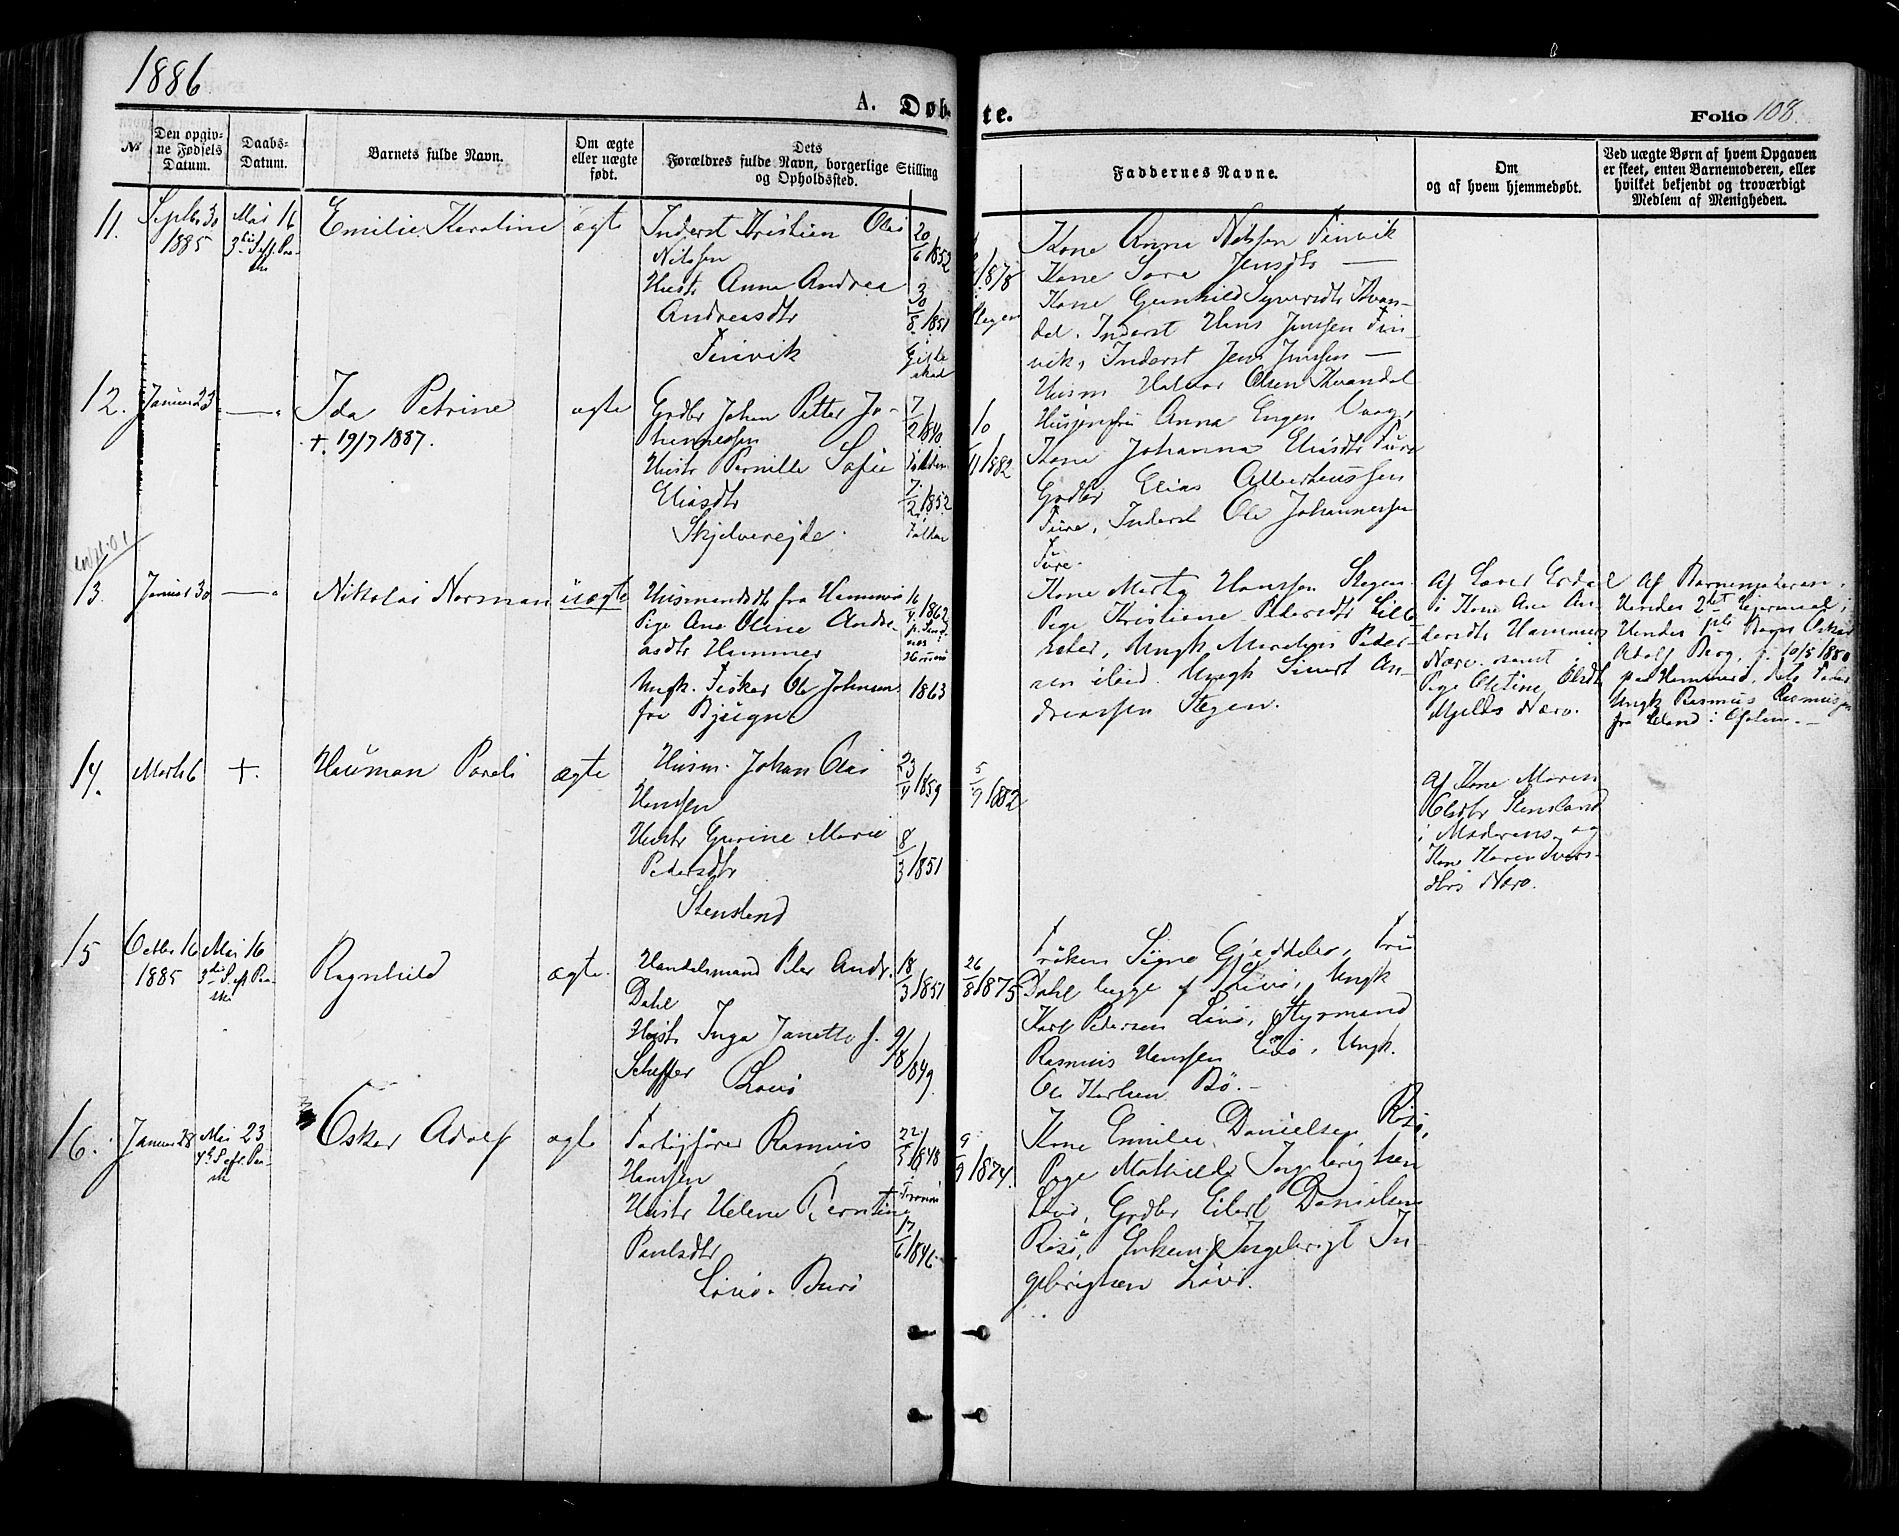 1886
A. Døbte.
Folio 108.
№
Den opgiv-
ne Fødsels
Datum.
Daabs-
Datum.
Barnets fulde Navn.
Om ægte
eller uægte
født.
Dets
Forældres fulde Navn, borgerlige Stilling
og Opholdssted.
Faddernes Navne.
Om
og af hvem hjemmedøbt.
Ved uægte Børn af hvem Opgaven
er skeet, enten Barnemoderen, eller
hvilket bekjendt og troværdigt
Medlem af Menigheden.
11.
Septbr 30
1885
Mai 16
Emilie Karoline
ægte
Inderst Kristian Olai
Nilssen
Hustr Anna Andrea
Andreasdtr
Finvik
20/6 1852
30/8 1851
Gilde
skaal
1878
Stegen
Kone Anna Nilssen Finvik
Kone Sara Jensdtr —
Kone Gunhild Syversdtr Kvan-
dal. Inderst Hans Jenssen Fin
vik, Inderst Jens Jenssen —
Husm Halvor Olsen Kvandal
12.
Januar 23
—
Ida Petrine
+. 19/7 1887.
ægte
Grdbr Johan Petter Jo-
hannessen
Hustr Pernille Sofie
Eliasdtr
Skjelvereide.
7/2 1840.
7/2 1852
Folden
10/11 1882
Husjomfru Anna Engen Vaag,
Kone Johanna Eliasdtr Fure
Grdbr Elias Alberteussen
Fure, Inderst Ole Johannessen
Fure.
13.
Januar 30
—
Nikolai Norman
uægte
Husmandsdtr fra Hammer
Pige Ane Oline Andre-
asdtr Hammer
Ungk. Fisker Ole Johnsen
fra Bjugn
16/4 1862
1863
Kone Marta Hanssen Stegen
Pige Kristiane Pedersdtr
Ungk Martin Peder-
sen ibid. Ungk Sivert An-
dreassen Stegen.
Af
i Kone Ane An
dersdtr Hammer
Nærv. samt
Pige Oletine Olsdtr
Mjelde Nærv.
Af Barnemoderen.
Hendes 2det Leiermaal;
Hendes 1ste Barn Oskar
Adolf Berg, f. 10/5 1880
paa Hammer, dets Fader
Ungk Rasmus Rasmussen
fra i Ofoten. —
14.
Marts 6
+.
Hauman Pareli
ægte
Husm. Johan Olai
Hanssen
Hustr Gurine Marie
Pedersdtr
Stensland
23/4 1859
8/3 1851
5/7 1882
Af Kone Maren
Olsdtr Stensland
i Moderens og
Kone Karen Ivers-
dtrs Nærv.
15
Octbr 16
1885
Mai 16
Ragnhild
ægte.
Handelsmand Peter Andr.
Dahl
Hustr Inga Janette f.
Scheffer
Løvø
18/3 1851
9/8 1849.
26/8 1875
Frøken Signe Gjeddebo, Fru
Dahl begge f Løvø, Ungk
Karl Pedersen Løvø, Styrmand
Rasmus Hanssen Løvø, Ungk.
Ole Karlsen Bø. —
16.
Januar 28
Mai 23
Oskar Adolf
ægte
Fartøifører Rasmus
Hanssen
Hustr Helene Berntine
Paulsdtr
Løvø. Burø
22/5 1848
Tromsø
17/6 1846.
9/9 1874.
Kone Emilie Danielsen Røsø,
Pige Mathilde Ingebrigtsen
Løvø, Grdbr Eilert Danielsen
Røsø, Enkem. Ingebrigt In
gebrigtsen Løvø.